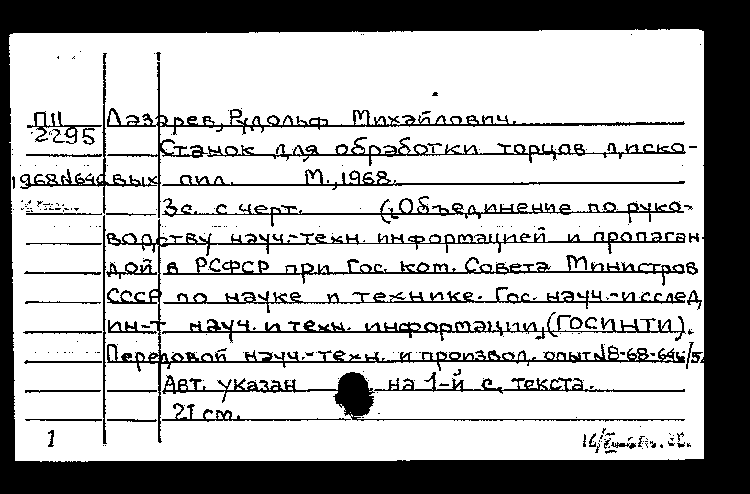 П11 Лазарев, Рудольф Михайлович.
2295
Станок для обработки торцов диско-
1968 N646 вых пил. М., 1968.
3с. с черт. (Объединение по руко-
водству науч.-техн. информацией и пропаган-
дой в РСФСР при Гос. ком. Совета Министров
СССР по науке и технике. Гос. науч.-исслед.
ин-т науч. и техн. информации, (ГОСИНТИ).
Передовой науч.-техн. и производ. опыт N8-68-646/5.
Авт. указан на 1-й с. текста.
21 см.
1